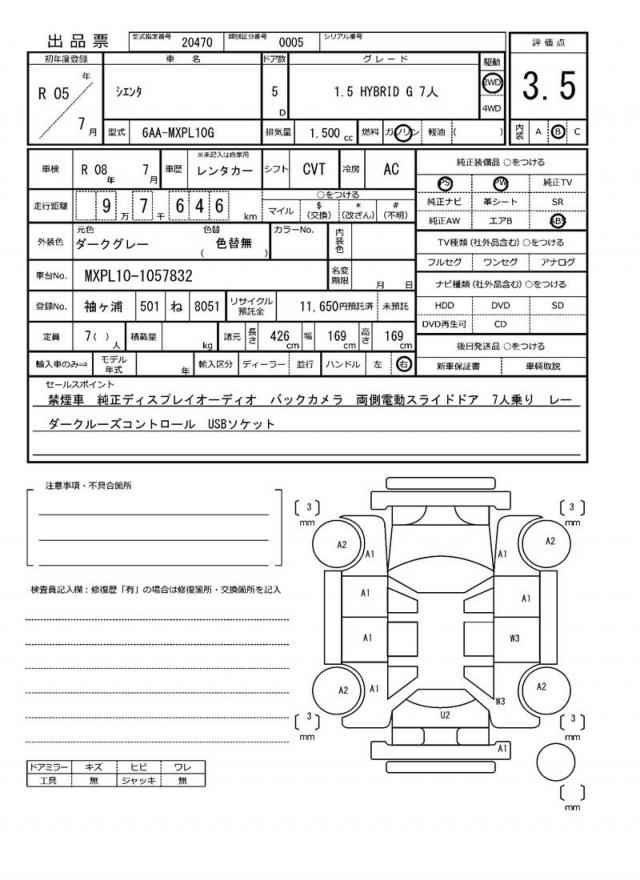 出品票 型式指定番号 20470 類別区分番号 0005 シリアル番号
評価点
3.5
初年度登録 車名 ドア数 グレード 駆動
R 05 年 7 月 シエンタ 5 D 1.5 HYBRID G 7人 2WD 4WD
型式 6AA-MXPL10G 排気量 1,500 cc 燃料 ガソリン 軽油 ( ) 内装 A B C
車検 R 08 年 7 月 車歴 ※未記入は自家用 レンタカー シフト CVT 冷房 AC
走行距離 9 万 7 千 6 4 6 km
○をつける
マイル $ (交換) * (改ざん) # (不明)
外装色 元色 ダークグレー 色替 ( 色替無 ) カラーNo. 内装色
車台No. MXPL10-1057832 名変期限 月 日
登録No. 袖ヶ浦 501 ね 8051 リサイクル預託金 11,650円預託済 未預託
定員 7( ) 人 積載量 kg 諸元 長さ 426 cm 幅 169 cm 高さ 169 cm
輸入車のみ⇒ モデル年式 年 輸入区分 ディーラー 並行 ハンドル 左 右
純正装備品 ○をつける
PS PW 純正TV
純正ナビ 革シート SR
純正AW エアB ABS
TV種類(社外品含む)○をつける
フルセグ ワンセグ アナログ
ナビ種類(社外品含む)○をつける
HDD DVD SD
DVD再生可 CD
後日発送品 ○をつける
新車保証書 車輌取説
セールスポイント
禁煙車 純正ディスプレイオーディオ バックカメラ 両側電動スライドドア 7人乗り レー
ダークルーズコントロール USBソケット
注意事項・不具合箇所
検査員記入欄:修復歴「有」の場合は修復箇所・交換箇所を記入
[ 3 ] mm [ 3 ] mm
A2 A1 A1 A2
A1 A1
A1 W3
A2 A1 W3 A2
U2
[ 3 ] mm [ 3 ] mm
A1
[ ] mm
ドアミラー キズ ヒビ ワレ
工具 無 ジャッキ 無